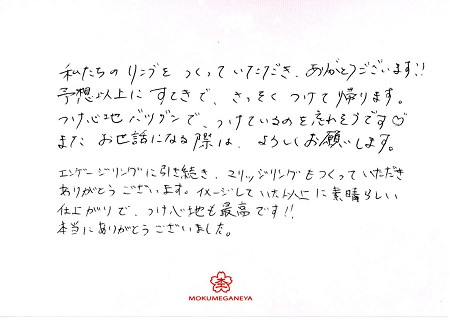 私たちのリングをつくっていただき、ありがとうございます!!
予想以上にすてきで、さっそくつけて帰ります。
つけ心地バツグンで、つけているのを忘れそうです♡
また お世話になる際は、よろしくお願いします。
エンゲージリングに引き続き、マリッジリングをつくっていただき
ありがとうございます。イメージしていた以上に素晴らしい
仕上がりで、つけ心地も最高です!!
本当にありがとうございました。
MOKUMEGANEYA